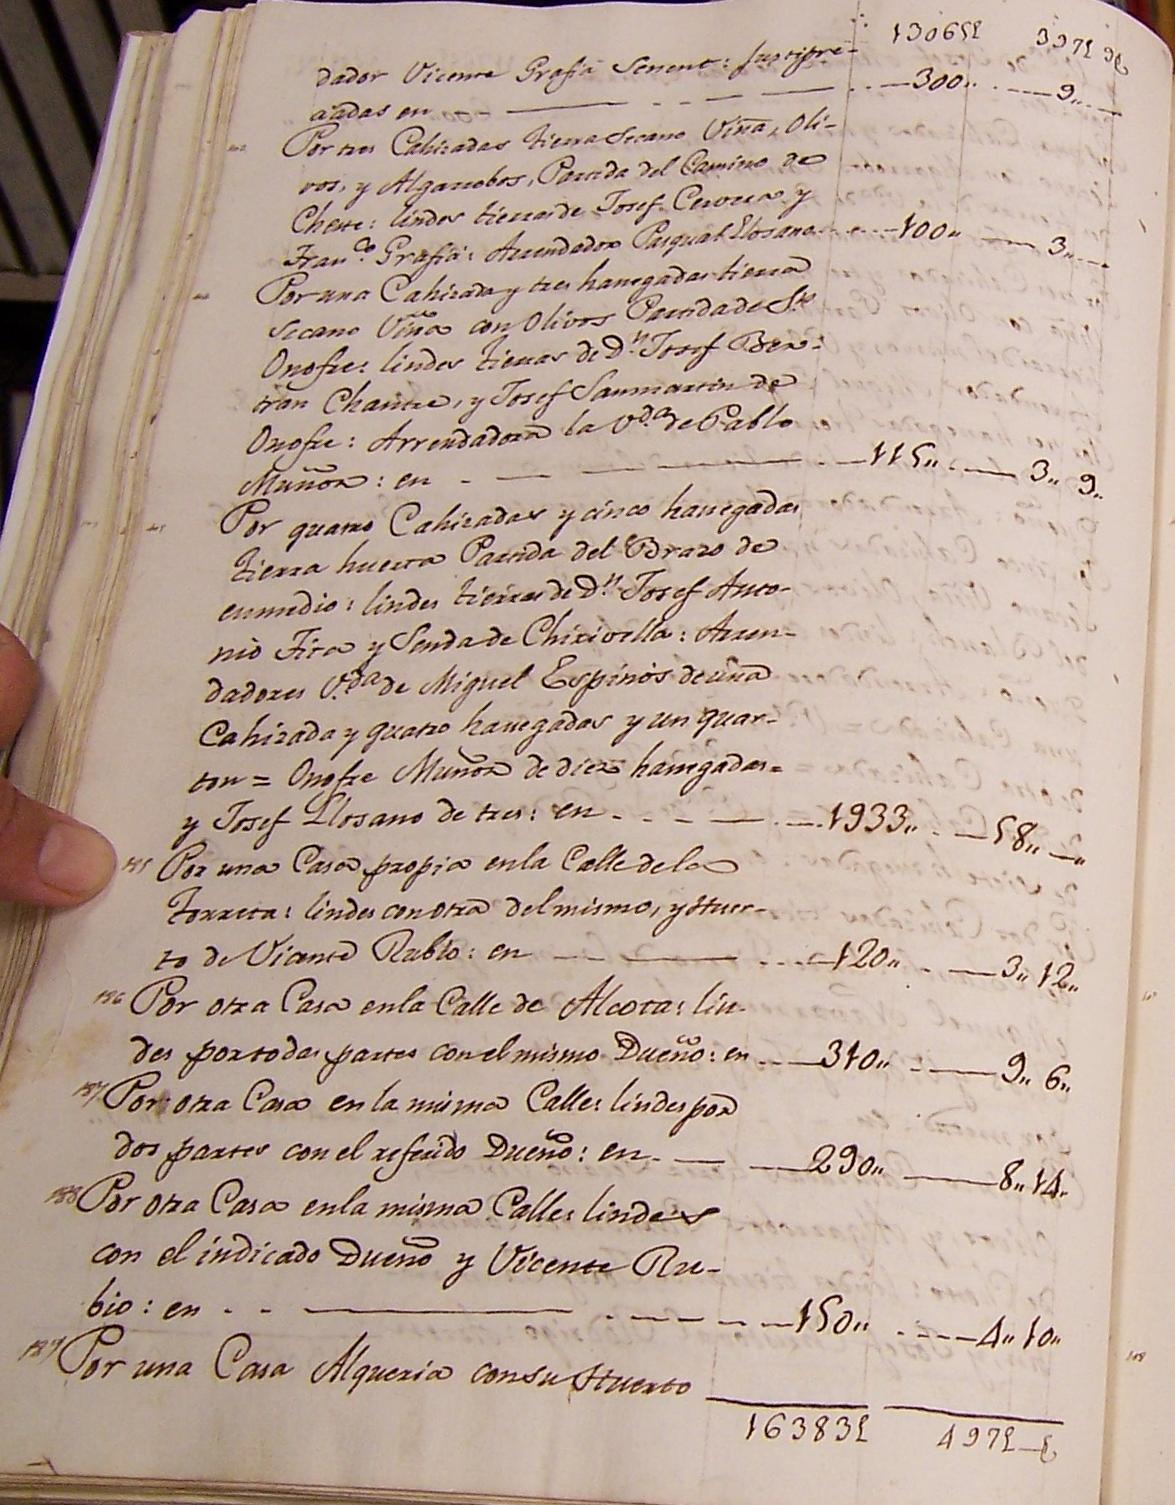 13065£ 397£ 9£
dador Vicente Grafiá Senent: Justipre-
ciadas en 300,, 9,,
Por tres Cahizadas tierra Secano Viña, Oli-
vos, y Algarrobos, Partida del Camino de
Cheste: lindes tierras de Josef Cervera y
Fran.co Grafiá: Arrendador Pasqual Llosano 100,, 3,,
Por una Cahizada y tres hanegadas tierra
Secano Viña con Olivos Partida de S.n
Onofre: lindes tierras de D.n Josef Bel-
trán Chantre, y Josef Sanmartin de
Onofre: Arrendadora la V.da de Pablo
Muñoz: en 115,, 3,, 9,,
Por quatro Cahizadas y cinco hanegadas
tierra huerta Partida del Brazo de
enmedio: lindes tierras de D.n Josef Anto-
nio Fita y Senda de Chirivella: Arren-
dadores V.da de Miguel Espinós de una
Cahizada y quatro hanegadas y un quar-
ton = Onofre Muñoz de diez hanegadas =
y Josef Llosano de tres: en 1933,, 58,, ,,
185 Por una Casa propia en la Calle de la
Torreta: lindes con otra del mismo, y Huer-
to de Vicente Rubio: en 120,, 3,, 12,,
186 Por otra Casa en la Calle de Alcota: lin-
des por todas partes con el mismo Dueño: en 310,, 9,, 6,,
187 Por otra Casa en la misma Calle: lindes por
dos partes con el referido Dueño: en 290,, 8,, 14,,
188 Por otra Casa en la misma Calle: lindes
con el indicado Dueño y Vicente Ru-
bio: en 150,, 4,, 10,,
189 Por una Casa Alqueria con su Huerto
16383£ 497£